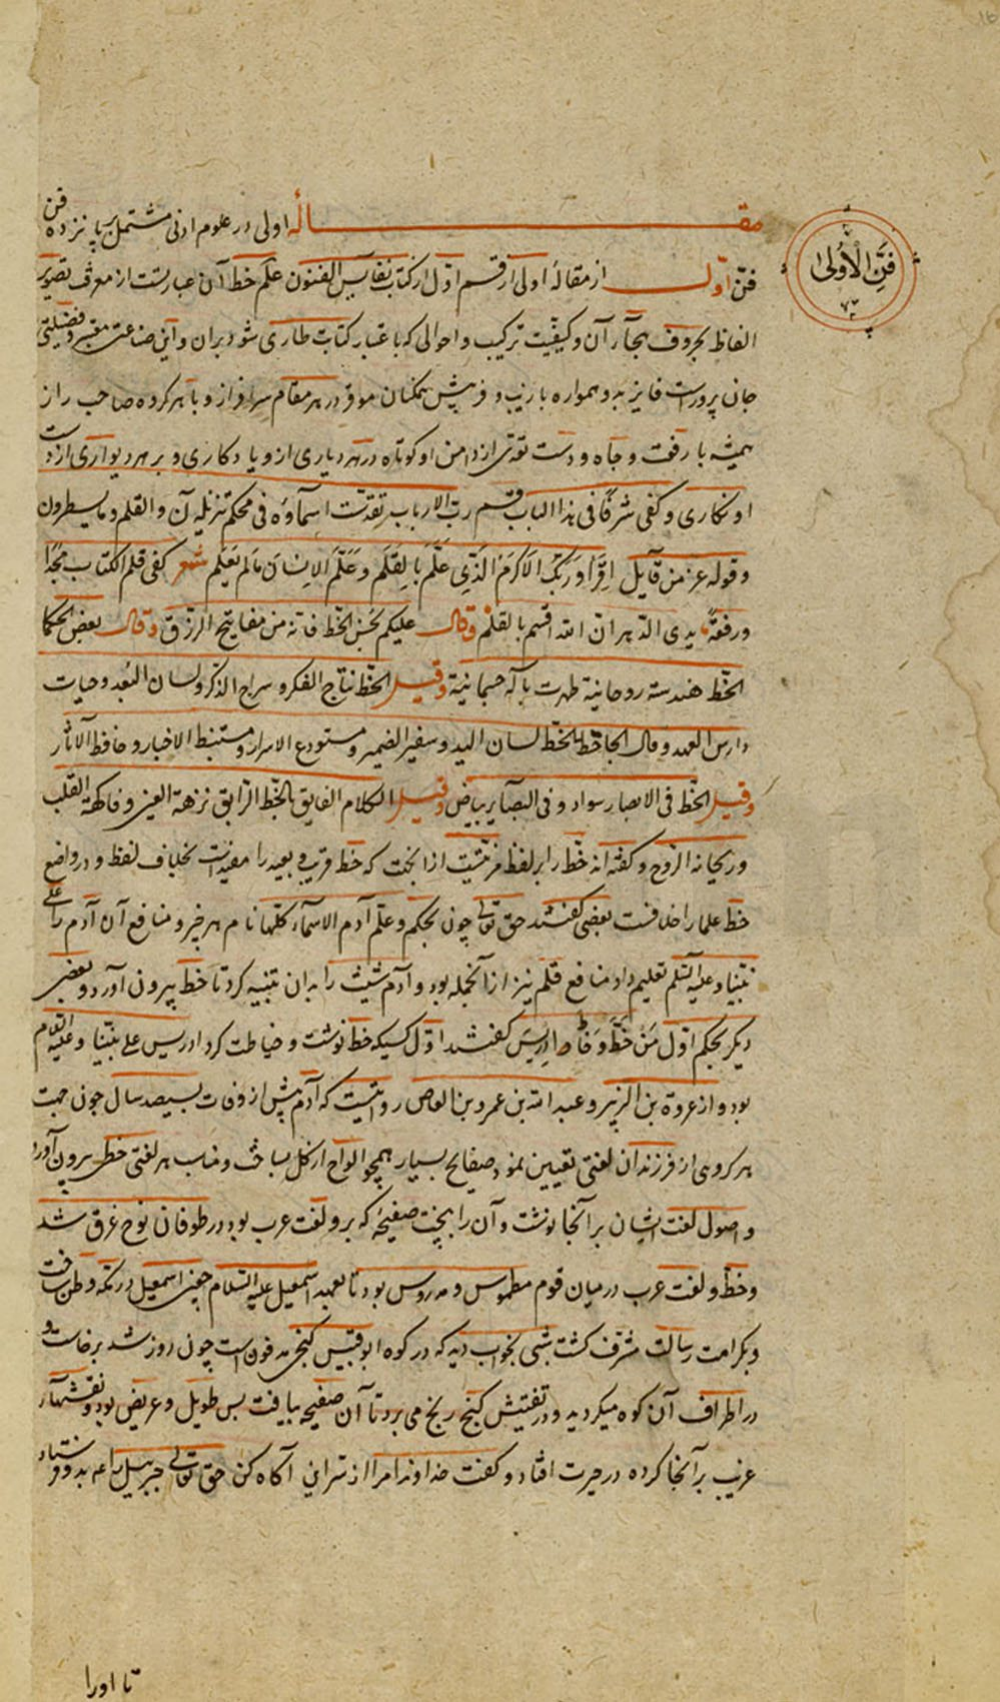 فن الاولی
مقـالهٔ اولی در علوم ادنی مشتمل بر پانزده فن
فن اول از مقالهٔ اولی از قسم اول از کتاب نفایس الفنون علم خط آن عبارتست از معرفت تصویر
الفاظ بحروف هجا آن و کیفیت ترکیب و احوالی که باعتبار کتابت طاری شود بران و این صناعتی معتبر و فضیلتی
جان پرورست فایز بدو همواره با زیب و فر پیش همکنان موقر در هر مقام سرافراز و با هر کروه صاحب راز
همیشه با رفعت و جاه و دست تعدی از دامن او کوتاه در هر دیاری ازو یادکاری و بر هر دیواری از دست
او نکاری و کفی شرفا فی هذا الباب قسم رب الارباب تقدست اسماؤه فی محکم تنزیله ن والقلم و ما یسطرون
و قوله عز من قایل اقرا و ربک الاکرم الذی علم بالقلم و علم الانسان مالم یعلم شعر کفی قلم الکتاب مجدا
و رفعة مدی الدهر ان الله اقسم بالقلم وقال علیکم بحسن الخط فانه من مفاتیح الرزق وقال بعض الحکما
الخط هندسة روحانیة ظهرت بآلة جسمانیة وقیل الخط نتاج الفکر و سراج الذکر و لسان البعد و حیات
دارس العهد و قال الجاحظ الخط لسان الید و سفیر الضمیر و مستودع الاسرار و مستنبط الاخبار و حافظ الآثار
وقیل الخط فی الابصار سواد و فی البصایر بیاض وقیل الکلام الفایق بالخط الرایق نزهة العین و فاکهة القلب
و ریحانة الروح و کفته‌اند خط را بر لفظ مزیتست ازانجت که خط قریب و بعید را مفیدست بخلاف لفظ و در واضع
خط علما را خلافست بعضی کفتند حق تعالی چون بحکم و علم آدم الاسماء کلها نام هر چیز و منافع آن آدم را علی
نبینا و علیه السلم تعلیم داد منافع قلم نیز از آنجمله بود و آدم شیث را بدان تنبیه کرد تا خط بیرون آورد و بعضی
دیکر بحکم اول من خط و خاط ادریس کفتند اول کسیکه خط نوشت و خیاطت کرد ادریس علی نبینا و علیه السلام
بود و از عروة بن الزبیر و عبد الله بن عمرو بن العاص روایتست که آدم پیش از وفات بسیصد سال چون جهت
هر کروهی از فرزندان لغتی تعیین نمود صفایح بسیار همچو الواح از کل بساخت و مناسب هر لغتی خطی بیرون آورد
و اصول لغت ایشان بر آنجا نوشت و آن را بپخت صفیحهٔ که برو لغت عرب بود در طوفان نوح غرق شد
و خط و لغت عرب در میان قوم مطموس و مدروس بود تا بعهد اسمعیل علیه السلام چون اسمعیل در مکه وطن ساخت
و بکرامت رسالت مشرف کشت شبی بخواب دید که در کوه ابو قبیس کنجی مدفون است چون روز شد برخاست و
در اطراف آن کوه میکردید و در تفتیش کنج رنج می برد تا آن صفیحه بیافت بس طویل و عریض بود و نقشهای
غریب بر آنجا کرده در حیرت افتاد و کفت خداوندا مرا از سر این آکاه کن حق تعالی جبرییل را عم بدو فرستاد
تا اورا